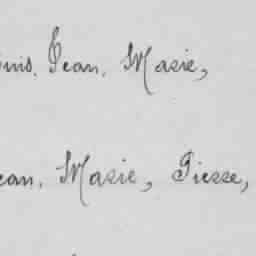 Jean, Marie,
ean, Marie, Pierre,